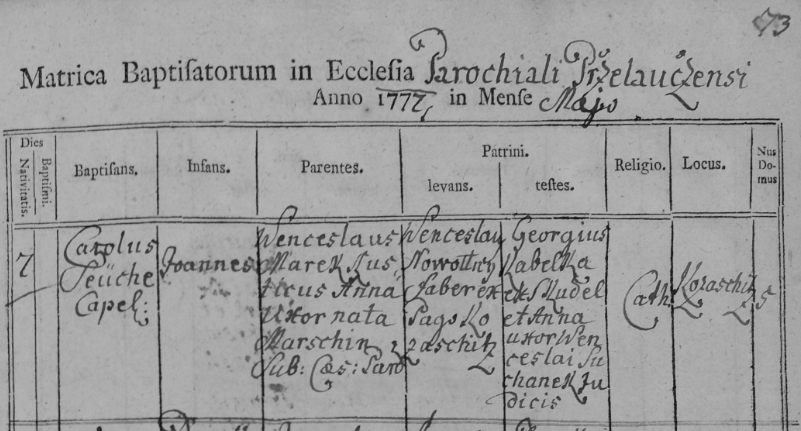 73
Matrica Baptisatorum in Ecclesia Parochiali Prželaučzensi
Anno 1777, in Mense Majo
Dies
Nativitatis.
Baptismi.
Baptisans.
Infans.
Parentes.
Patrini.
levans.
testes.
Religio.
Locus.
Nus
Do-
mus
7
Carolus
Capel:
Joannes
Wenceslaus
Marek Rus
ticus Anna
Uxor nata
Marschin
Sub: Cæs: Pard
Wenceslaus
Nowottny
Faber ex
Pago Ko
zaschitz
Georgius
Kabelka
et Anna
uxor Wen
ceslai Su
chanek Ju
dicis
Cath:
Kozaschitz
5